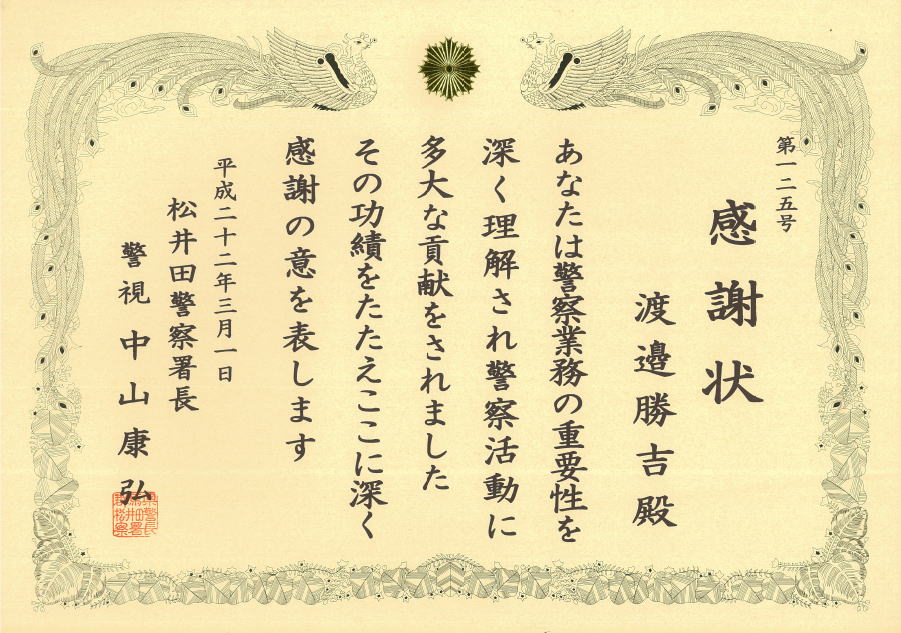 第一二五号
感謝状
渡邉勝吉殿
あなたは警察業務の重要性を
深く理解され警察活動に
多大な貢献をされました
その功績をたたえここに深く
感謝の意を表します
平成二十二年三月一日
松井田警察署長
警視 中山康弘